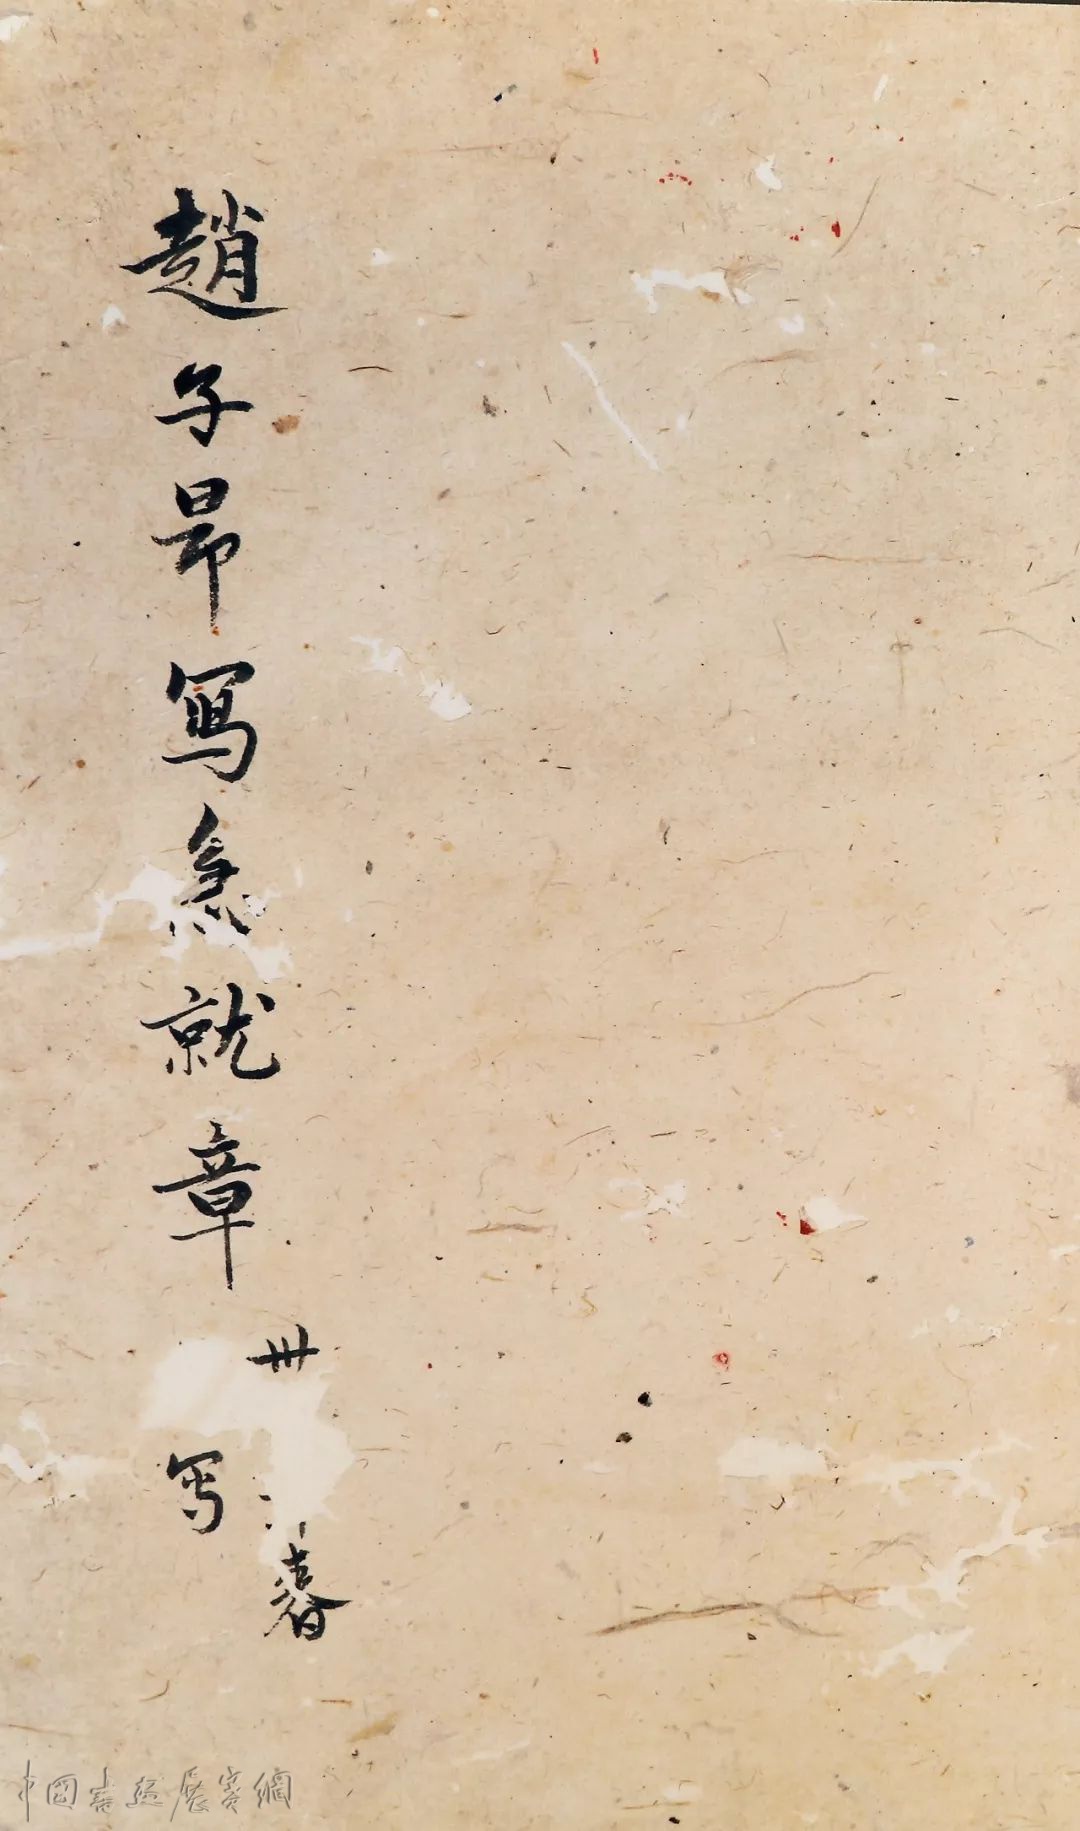 趙子昂寫急就章
卅
春
写
中國書畫展賽網